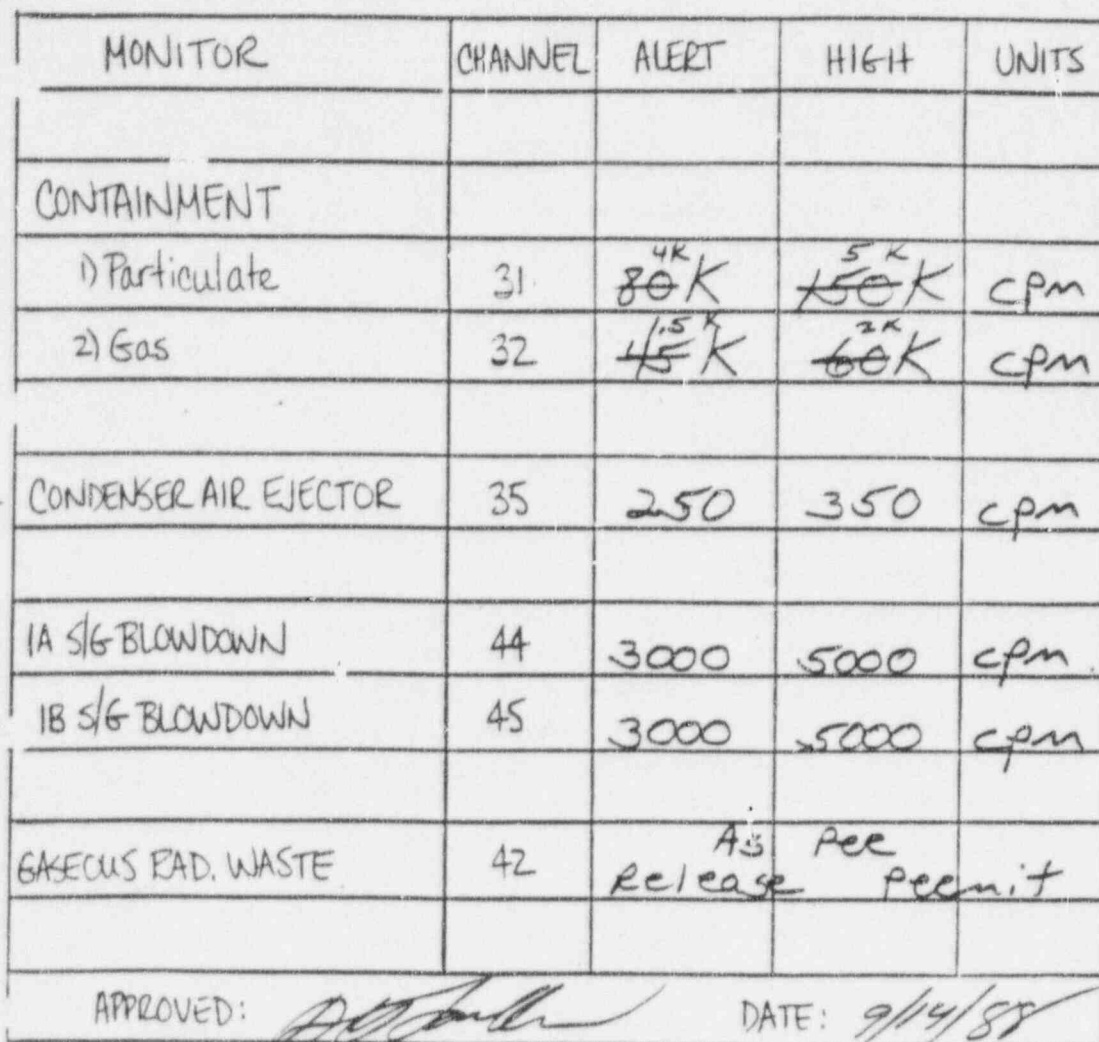 MONITOR CHANNEL ALERT HIGH UNITS
CONTAINMENT
4K 5K
1) Particulate 31 80K 150K cpm
1.5K 2K
2) Gas 32 45K 60K cpm
CONDENSER AIR EJECTOR 35 250 350 cpm
1A S/G BLOWDOWN 44 3000 5000 cpm
1B S/G BLOWDOWN 45 3000 5000 cpm
GASEOUS RAD. WASTE 42 As Per
Release Permit
APPROVED: DATE: 9/14/88